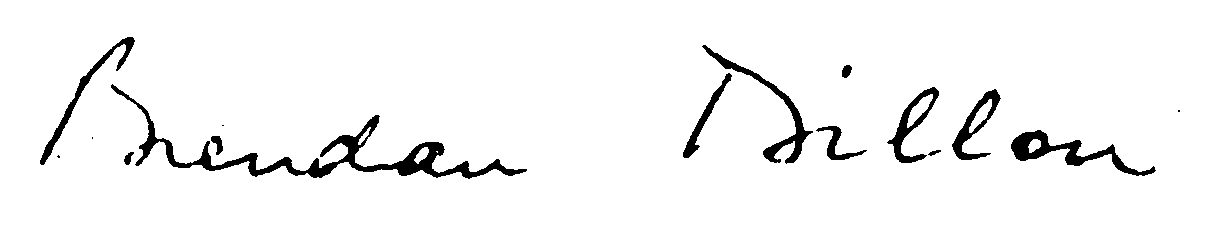 Brendan Dillon